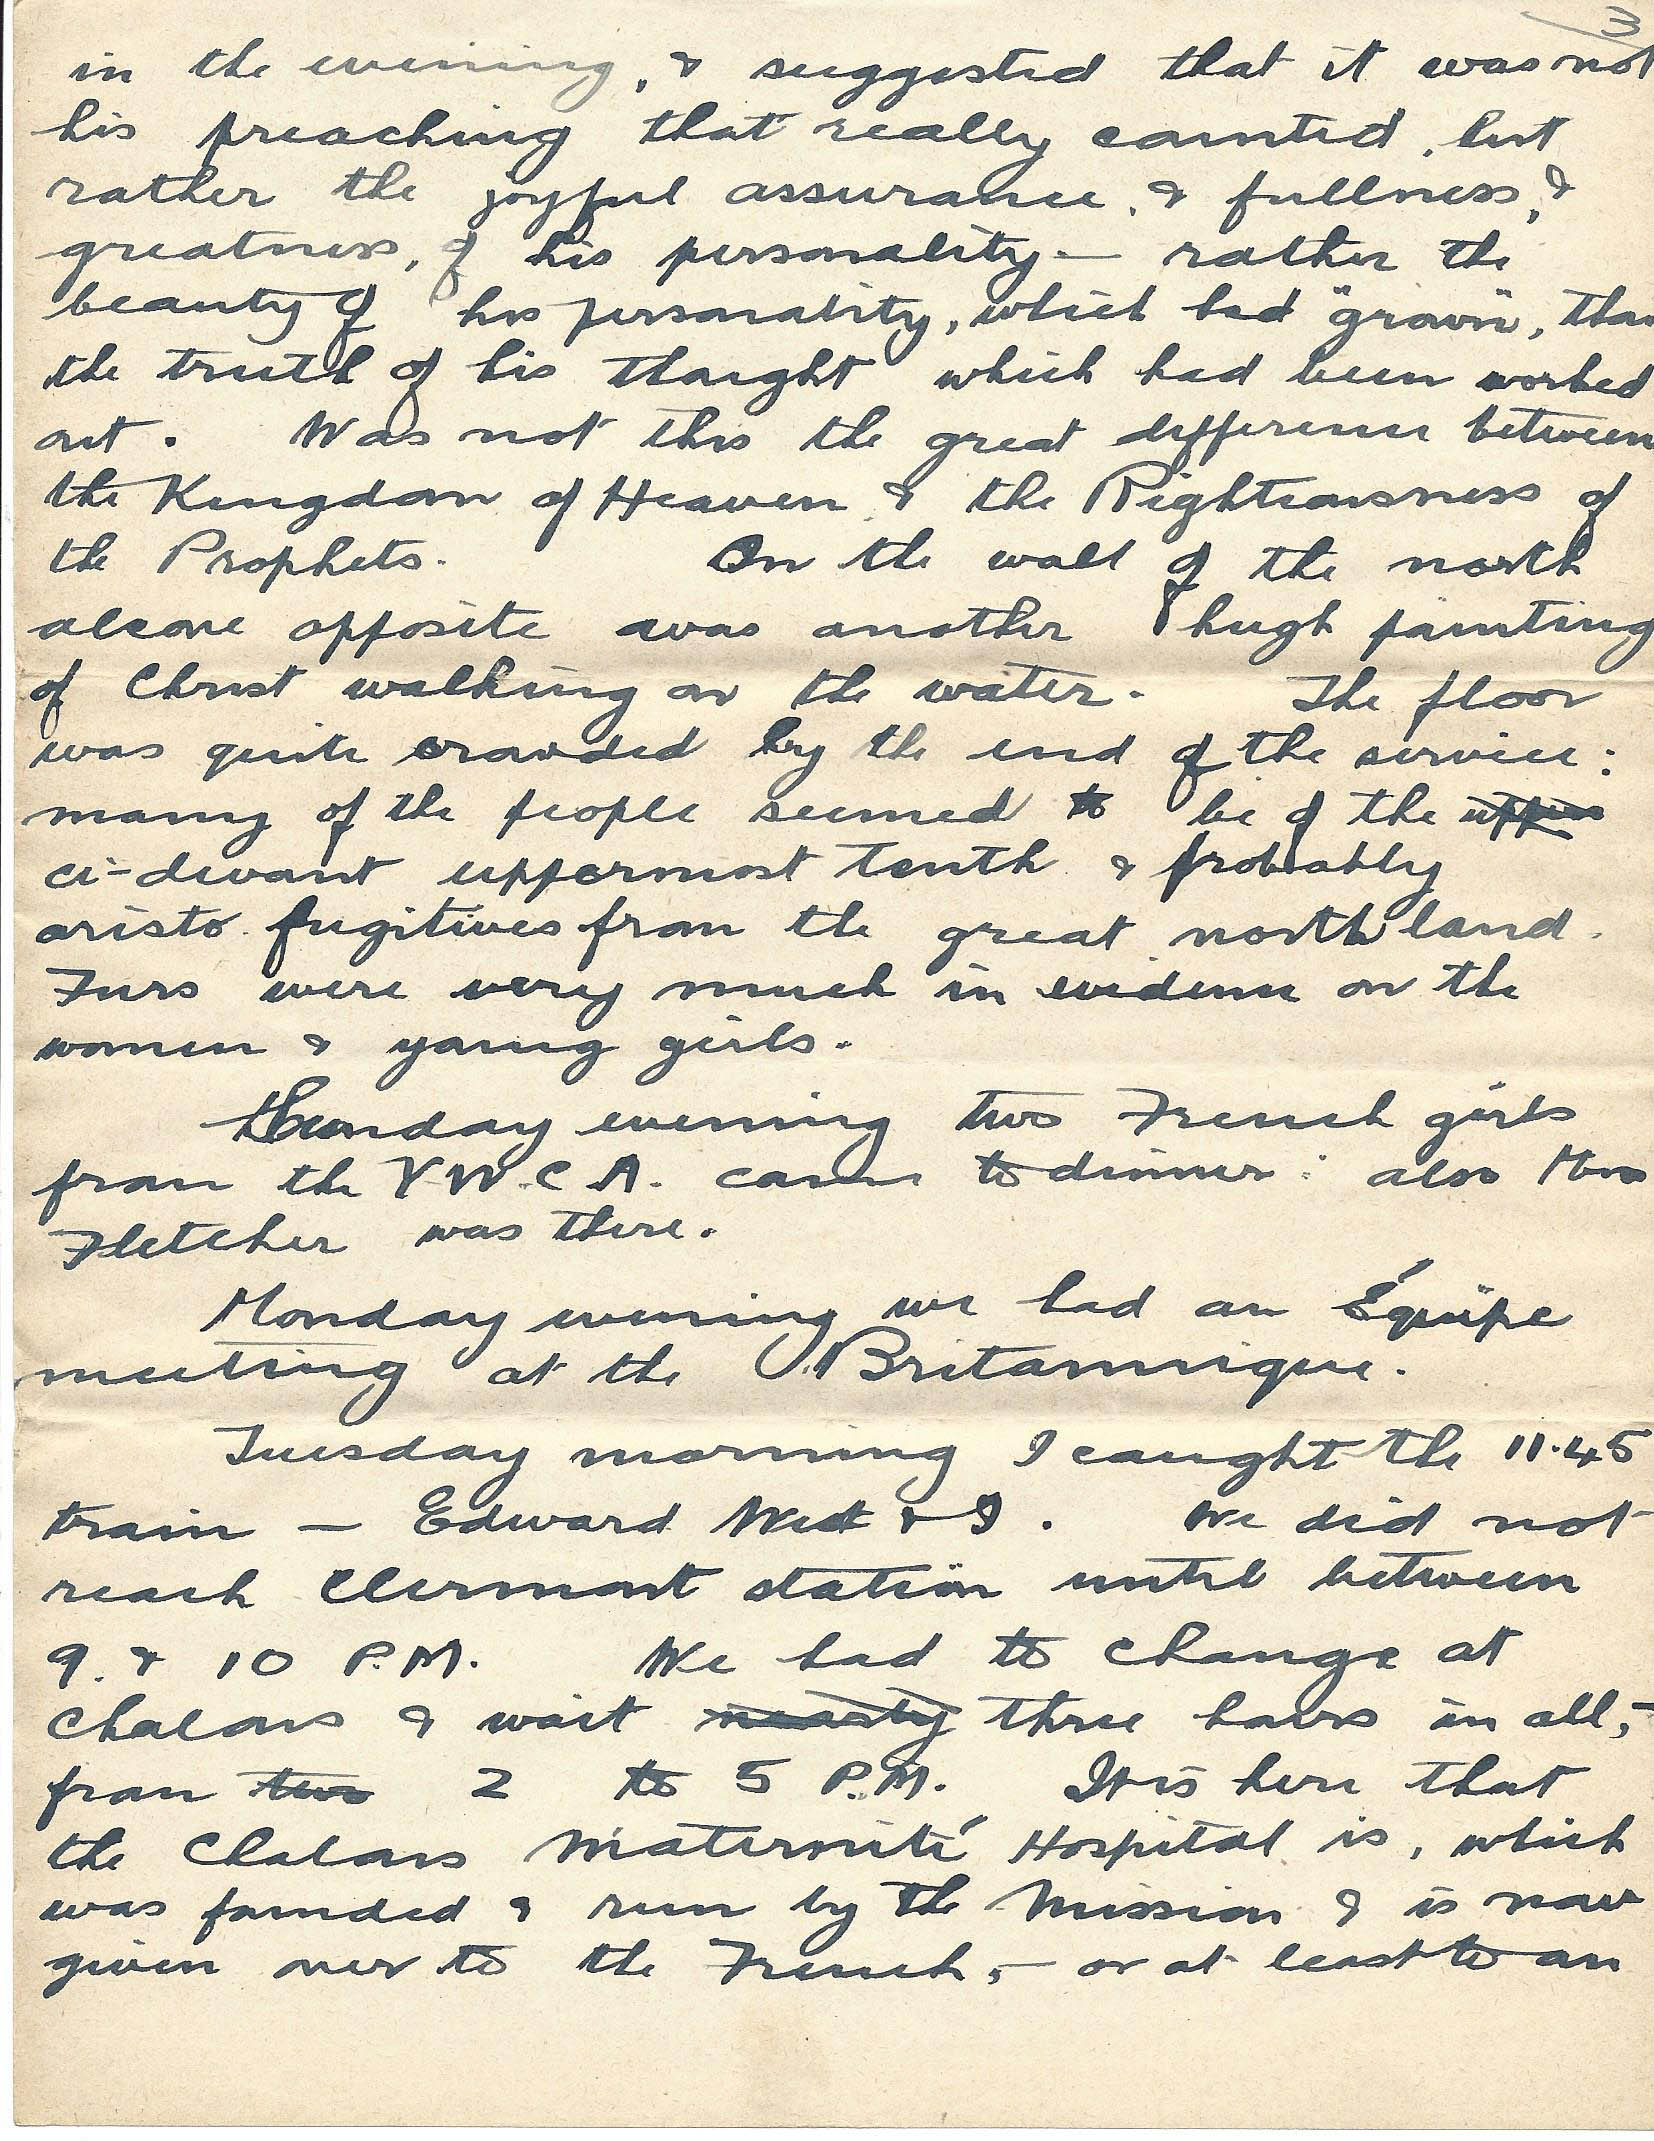 3
in the evening, & suggested that it was not
his preaching that really counted, but
rather the joyful assurance, & fullness, &
greatness, of his personality — rather the
beauty of his personality, which had "grown", than
the truth of his thought which had been worked
out. Was not this the great difference between
the Kingdom of Heaven & the Righteousness of
the Prophets. On the wall of the north
alcove opposite was another hugh painting
of Christ walking on the water. The floor
was quite crowded by the end of the service:
many of the people seemed to be of the upper
ci-devant uppermost tenth & probably
aristo fugitives from the great north land.
Furs were very much in evidence on the
women & young girls.
Sunday evening two French girls
from the Y.W.C.A. came to dinner: also
Fletcher was there.
Monday evening we had an Équipe
meeting at the Britannique.
Tuesday morning I caught the 11.45
train — Edward West & I. We did not
reach Clermont station until between
9. & 10 P.M. We had to change at
Chalons & wait nearly three hours in all, –
from two 2 to 5 P.M. It is here that
the Chalons Maternité Hospital is, which
was founded & run by the Mission & is now
given over to the French, – or at least to an